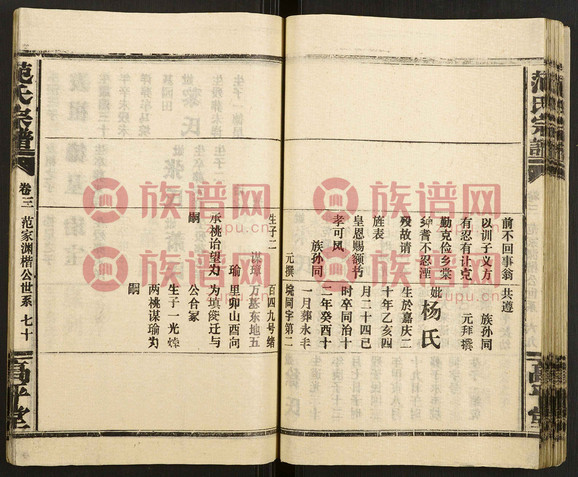 范氏宗譜
前不回事翁 共遵
以训子义方 族孙同
有忍有让克 元拜撰
勤克俭乡党
绅耆不忍湮
殁故请
旌表
皇恩赐额竹
孝可风
族孙同
元撰
妣杨氏
生於嘉庆二
十年乙亥四
月二十四已
时卒同治十
二年癸酉十
一月葬永丰
境同字第二
百四九号绪
万墓东地五
里卯山酉向
为填俟迁与
公合冢
生子一光焯
两祧谋瑜为
嗣
生子二
谋璋
瑜
承桃诒望为
嗣
范氏宗譜
卷三 范家渊楷公世系 七十
高平堂
族谱网